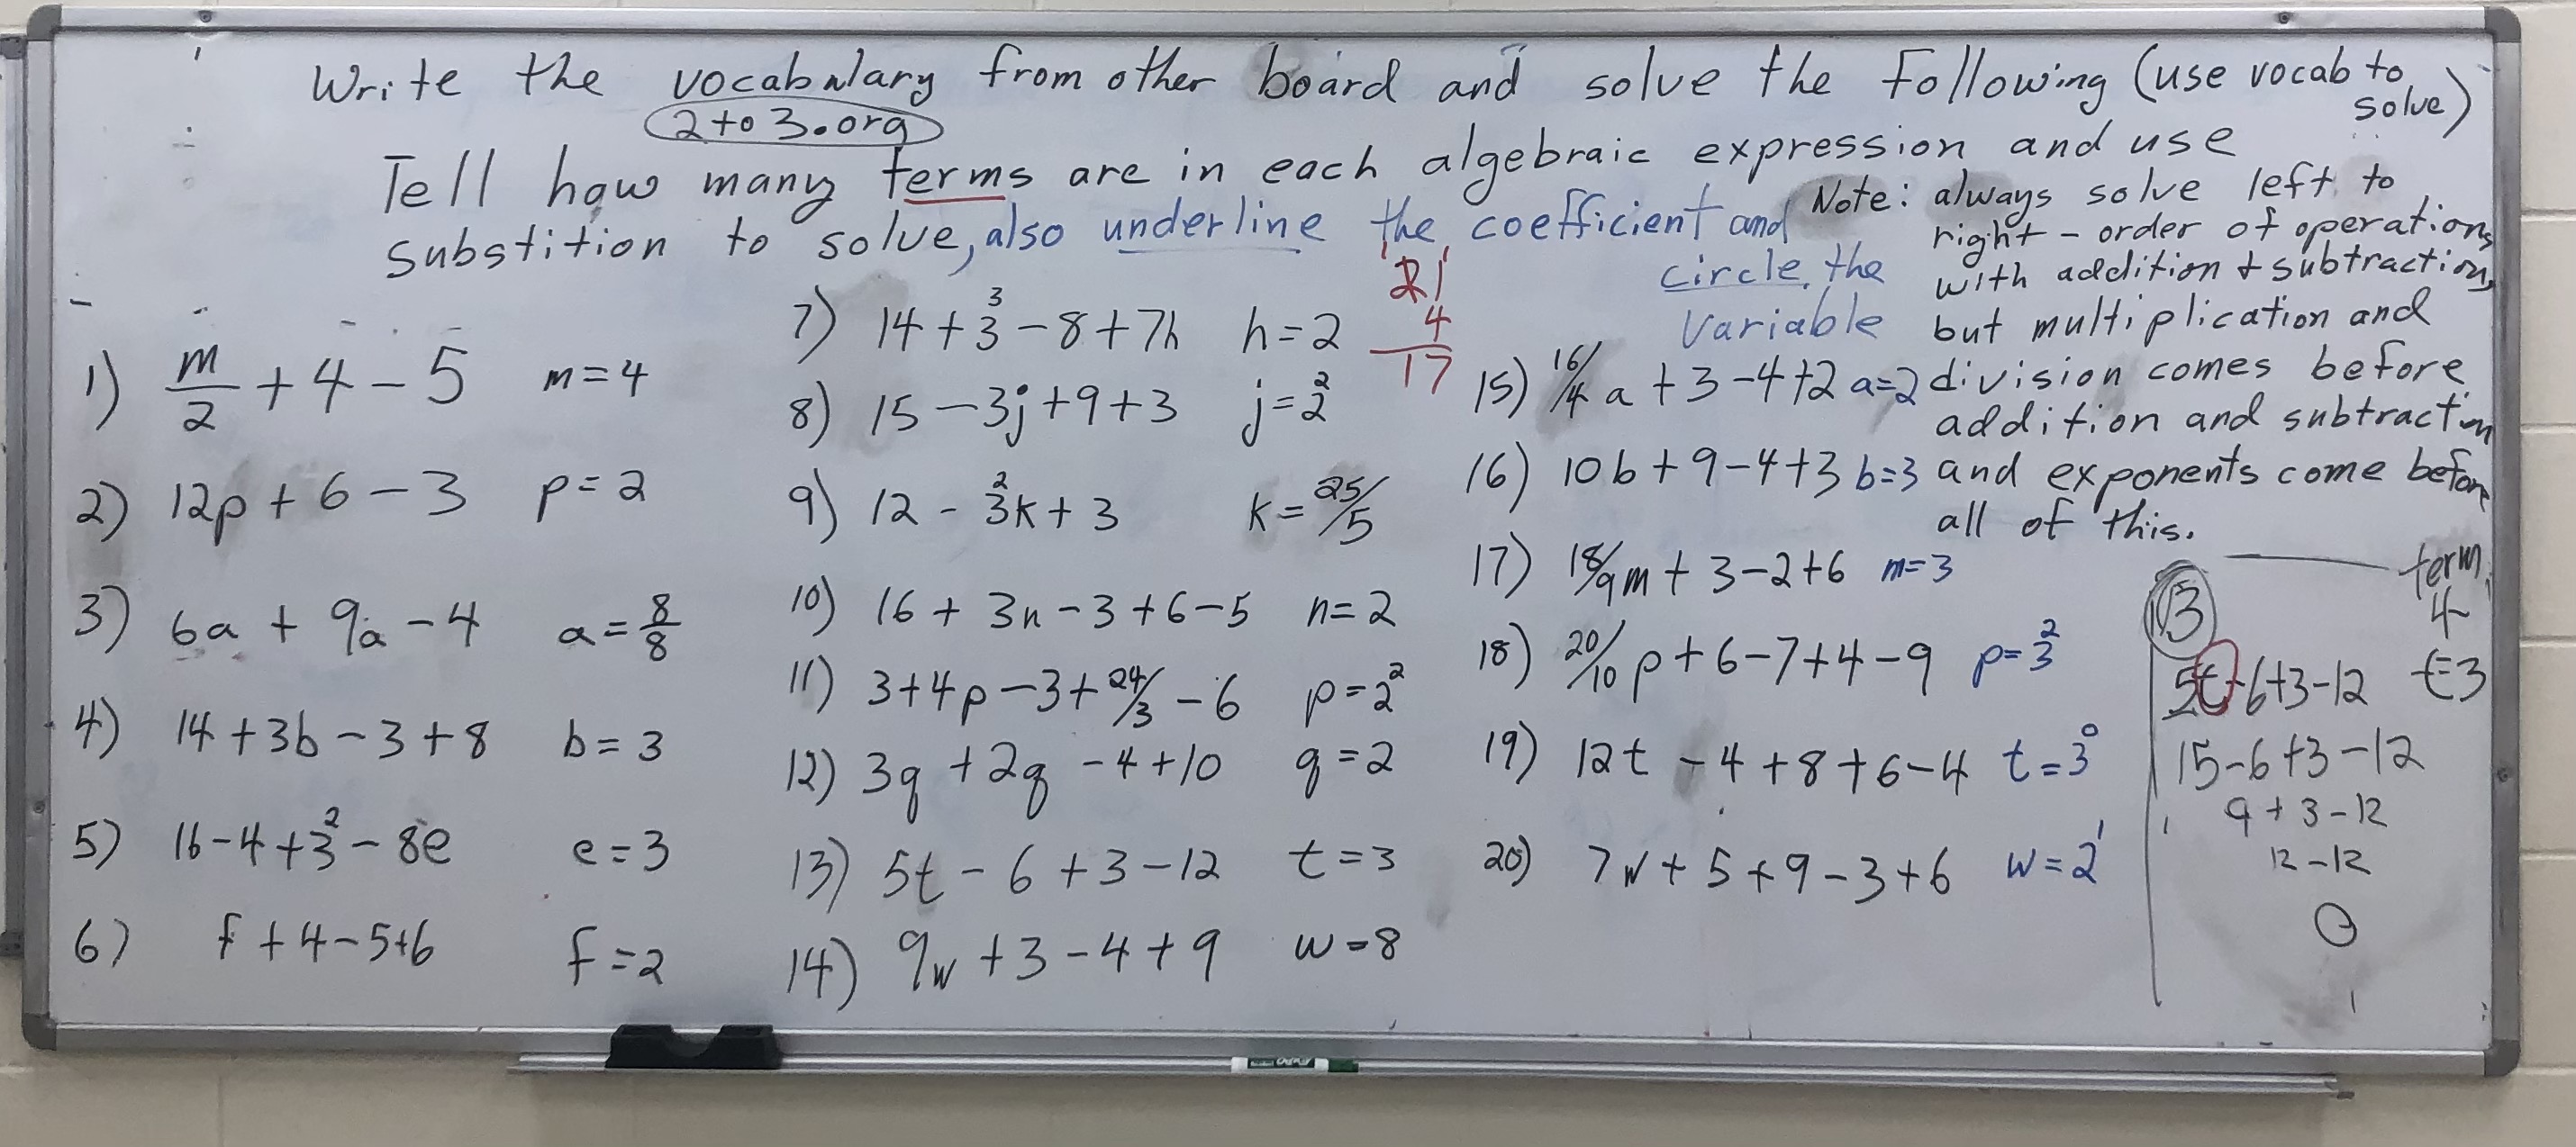 Write the vocabulary from other board and solve the following (use vocab to solve)
2to3.org
Tell how many terms are in each algebraic expression and use
substition to solve, also underline the coefficient and
circle the
Variable
Note: always solve left to
right - order of operations
with addition + subtraction,
but multiplication and
division comes before
addition and subtraction
and exponents come before
all of this.
21
4
17
1) m/2 + 4 - 5 m = 4
2) 12p + 6 - 3 p = 2
3) 6a + 9a - 4 a = 8/8
4) 14 + 3b - 3 + 8 b = 3
5) 16 - 4 + 3² - 8e e = 3
6) f + 4 - 5 + 6 f = 2
7) 14 + 3³ - 8 + 7h h = 2
8) 15 - 3j + 9 + 3 j = 2²
9) 12 - 3²k + 3 k = 25/5
10) 16 + 3n - 3 + 6 - 5 n = 2
11) 3 + 4p - 3 + 24/3 - 6 p = 2²
12) 3q + 2q - 4 + 10 q = 2
13) 5t - 6 + 3 - 12 t = 3
14) 9w + 3 - 4 + 9 w = 8
15) 16/4 a + 3 - 4 + 2 a = 2
16) 10b + 9 - 4 + 3 b = 3
17) 18/9 m + 3 - 2 + 6 m = 3
18) 20/10 p + 6 - 7 + 4 - 9 p = 3²
19) 12t - 4 + 8 + 6 - 4 t = 3⁰
20) 7w + 5 + 9 - 3 + 6 w = 2¹
13 term
4
5t - 6 + 3 - 12 t = 3
15 - 6 + 3 - 12
9 + 3 - 12
12 - 12
0